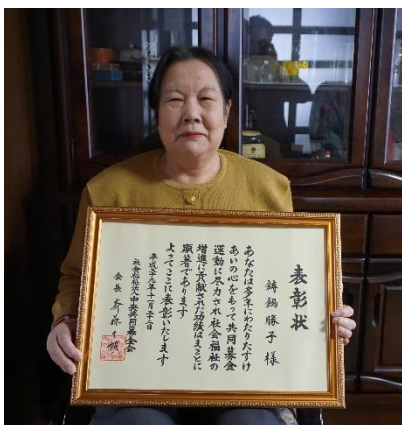 表彰状
鋳錫勝子 様
あなたは多年にわたりたすけ
あいの心をもって共同募金
運動に尽力され社会福祉の
増進に貢献された功績はまことに
顕著であります
よってここに表彰いたします
平成二十九年十一月二十二日
社会福祉法人中央共同募金会
会長